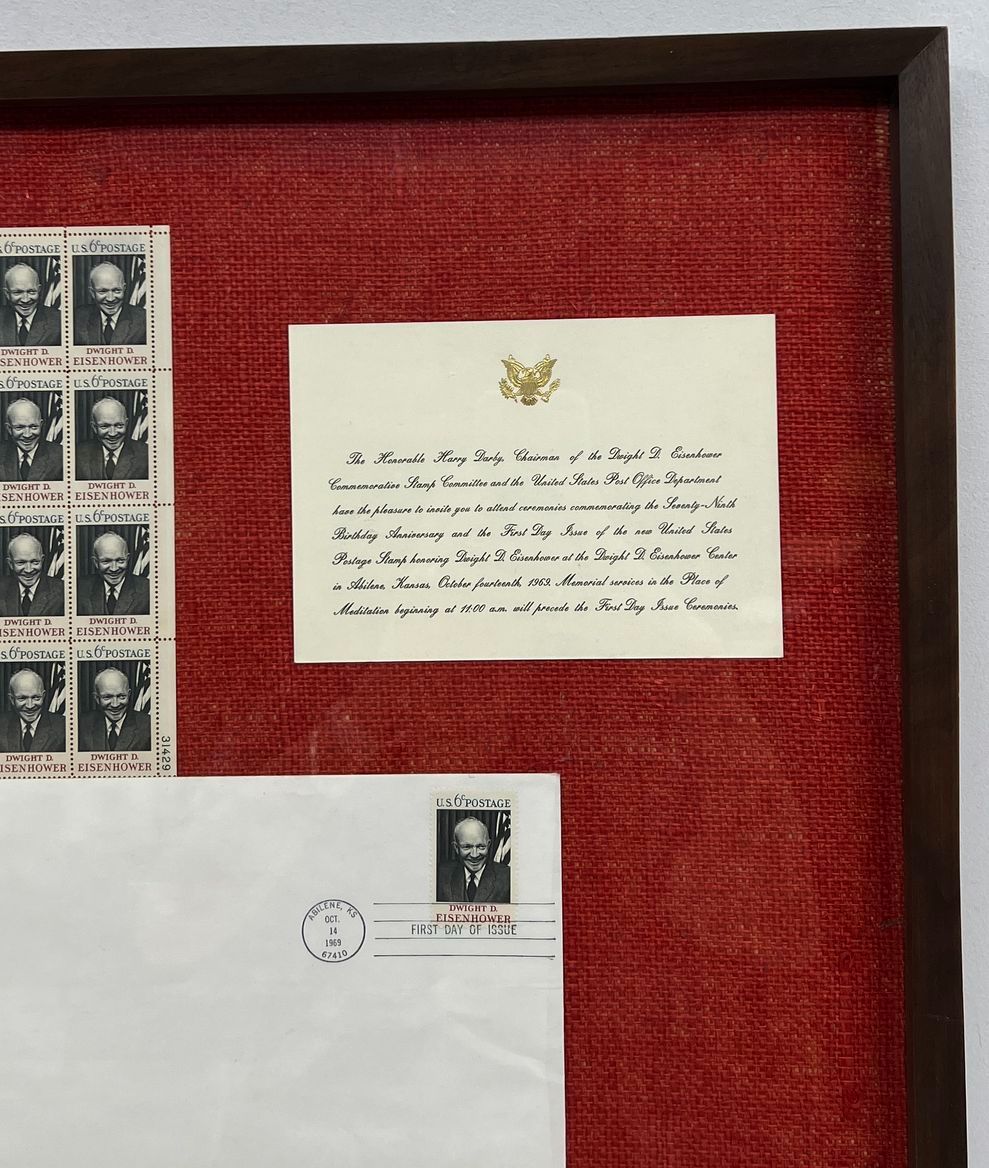 U.S. 6c POSTAGE U.S. 6c POSTAGE
DWIGHT D. DWIGHT D.
EISENHOWER EISENHOWER
U.S. 6c POSTAGE U.S. 6c POSTAGE
DWIGHT D. DWIGHT D.
EISENHOWER EISENHOWER
U.S. 6c POSTAGE U.S. 6c POSTAGE
DWIGHT D. DWIGHT D.
EISENHOWER EISENHOWER
U.S. 6c POSTAGE U.S. 6c POSTAGE
DWIGHT D. DWIGHT D.
EISENHOWER EISENHOWER
31429
The Honorable Harry Darby, Chairman of the Dwight D. Eisenhower
Commemorative Stamp Committee and the United States Post Office Department
have the pleasure to invite you to attend ceremonies commemorating the Seventy-Ninth
Birthday Anniversary and the First Day Issue of the new United States
Postage Stamp honoring Dwight D. Eisenhower at the Dwight D. Eisenhower Center
in Abilene, Kansas, October fourteenth, 1969. Memorial services in the Place of
Meditation beginning at 11:00 a.m. will precede the First Day Issue Ceremonies.
U.S. 6c POSTAGE
DWIGHT D.
EISENHOWER
ABILENE, KS
OCT.
14
1969
67410
FIRST DAY OF ISSUE